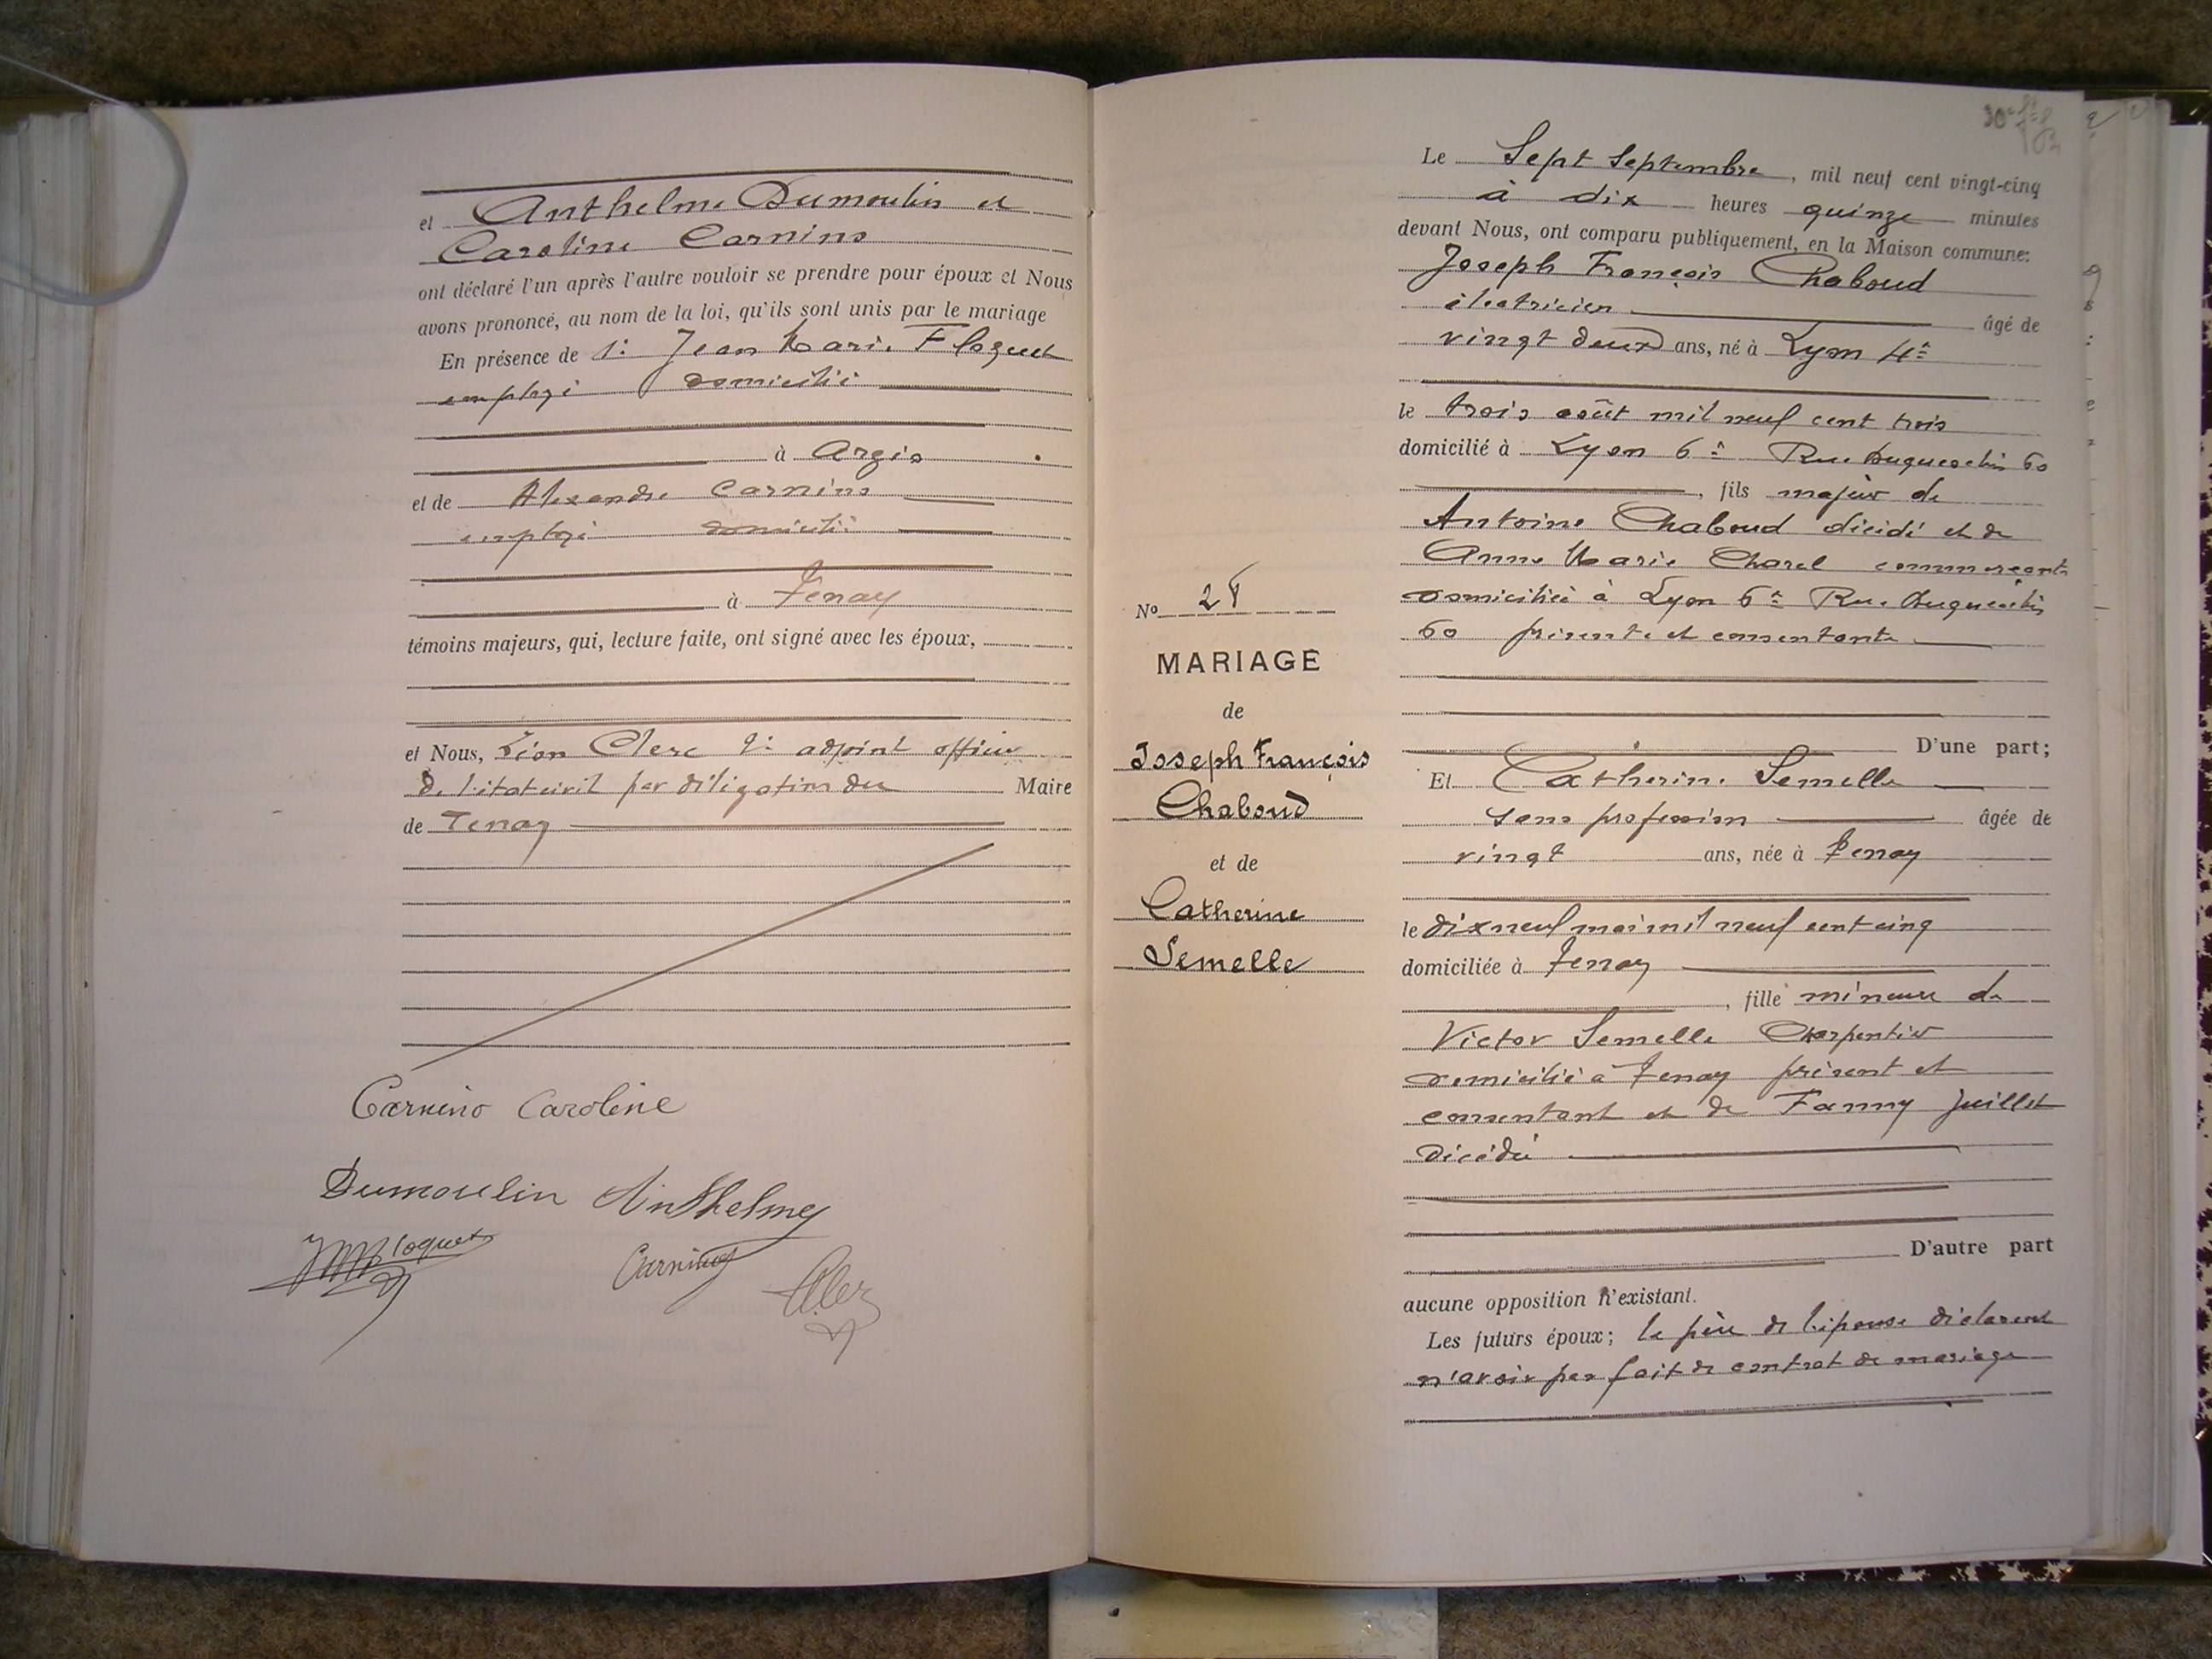 et Anthelme Dumoulin et
Caroline Carnino
ont déclaré l'un après l'autre vouloir se prendre pour époux et Nous
avons prononcé, au nom de la loi, qu'ils sont unis par le mariage
En présence de Jean Marie Floquet
employé domicilié
à Argis
et de Alexandre Carnino
employé domicilié
à Tenay
témoins majeurs, qui, lecture faite, ont signé avec les époux,
et Nous, Léon Clerc adjoint officier
de l'état civil par délégation du Maire
de Tenay
Carnino Caroline
Dumoulin Anthelme
JM Floquet
Carnino
Le Sept Septembre, mil neuf cent vingt-cinq
à dix heures quinze minutes
devant Nous, ont comparu publiquement, en la Maison commune:
Joseph François Chaboud
électricien âgé de
vingt deux ans, né à Lyon 4e
le trois août mil neuf cent trois
domicilié à Lyon 6e Rue Duguesclin 60
, fils majeur de
Antoine Chaboud décédé et de
Anne Marie Charel commerçante
domiciliée à Lyon 6e Rue Duguesclin
60 présente et consentante
D'une part;
No 28
MARIAGE
de
Joseph François
Chaboud
et de
Catherine
Semelle
Et Catherine Semelle
sans profession âgée de
vingt ans, née à Tenay
le dix neuf mai mil neuf cent cinq
domiciliée à Tenay
, fille mineure de
Victor Semelle Charpentier
domicilié à Tenay présent et
consentant et de Fanny Juillet
décédée
D'autre part
aucune opposition n'existant.
Les futurs époux; le père de l'épouse déclarent
n'avoir pas fait de contrat de mariage